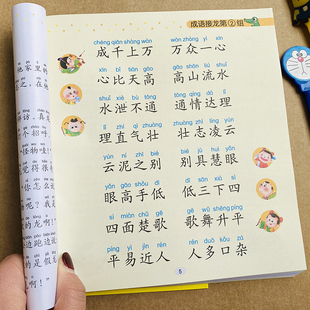 成语接龙第②组
chéng qiān shàng wàn wàn zhòng yì xīn
成千上万 万众一心
xīn bǐ tiān gāo gāo shān liú shuǐ
心比天高 高山流水
shuǐ xiè bù tōng tōng qíng dá lǐ
水泄不通 通情达理
lǐ zhí qì zhuàng zhuàng zhì líng yún
理直气壮 壮志凌云
yún ní zhī bié bié jù huì yǎn
云泥之别 别具慧眼
yǎn gāo shǒu dī dī sān xià sì
眼高手低 低三下四
sì miàn chǔ gē gē wǔ shēng píng
四面楚歌 歌舞升平
píng yì jìn rén rén duō kǒu zá
平易近人 人多口杂